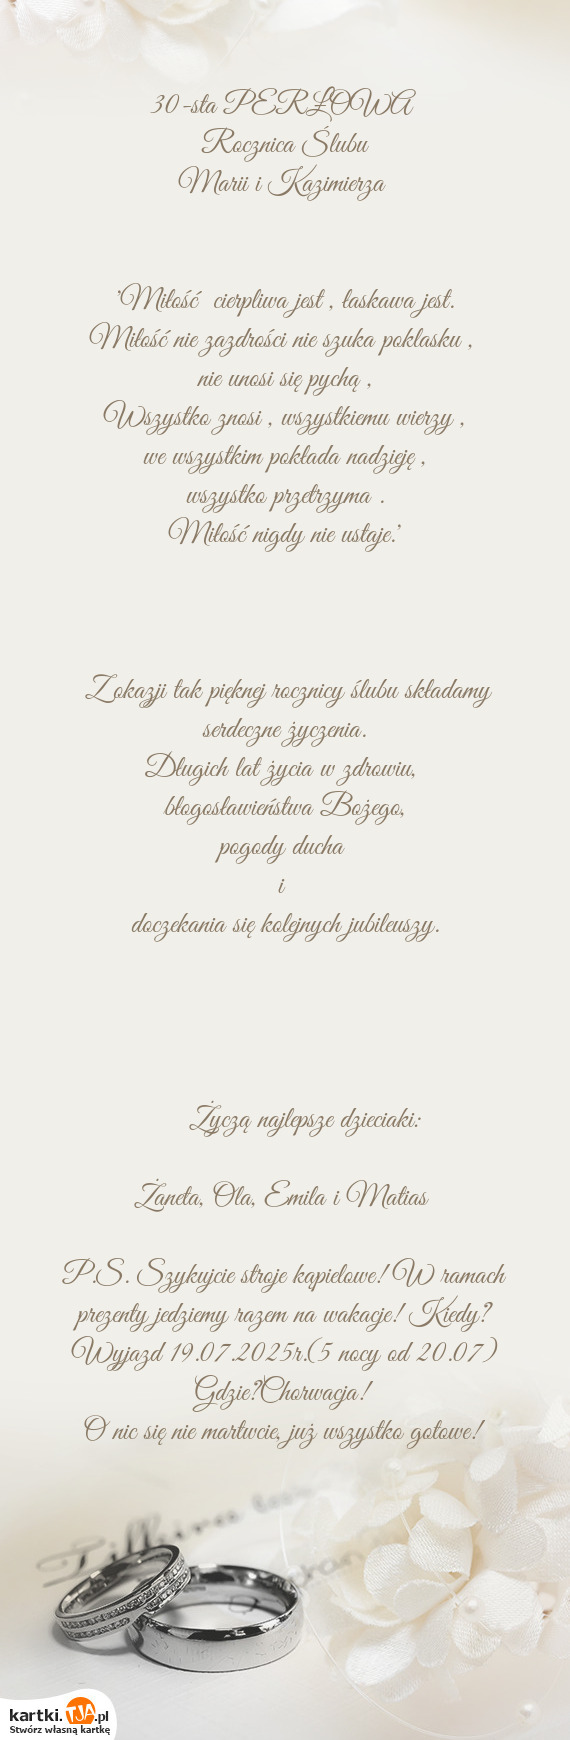 30-sta PERŁOWA
Rocznica Ślubu
Marii i Kazimierza
'Miłość cierpliwa jest , łaskawa jest.
Miłość nie zazdrości nie szuka poklasku ,
nie unosi się pychą ,
Wszystko znosi , wszystkiemu wierzy ,
we wszystkim pokłada nadzieję ,
wszystko przetrzyma .
Miłość nigdy nie ustaje.'
Z okazji tak pięknej rocznicy ślubu składamy
serdeczne życzenia.
Długich lat życia w zdrowiu,
błogosławieństwa Bożego,
pogody ducha
i
doczekania się kolejnych jubileuszy.
Życzą najlepsze dzieciaki:
Żaneta, Ola, Emila i Matias
P.S. Szykujcie stroje kąpielowe! W ramach
prezenty jedziemy razem na wakacje! Kiedy?
Wyjazd 19.07.2025r.(5 nocy od 20.07)
Gdzie?Chorwacja!
O nic się nie martwcie, już wszystko gotowe!
kartki.TJA.pl
Stwórz własną kartkę